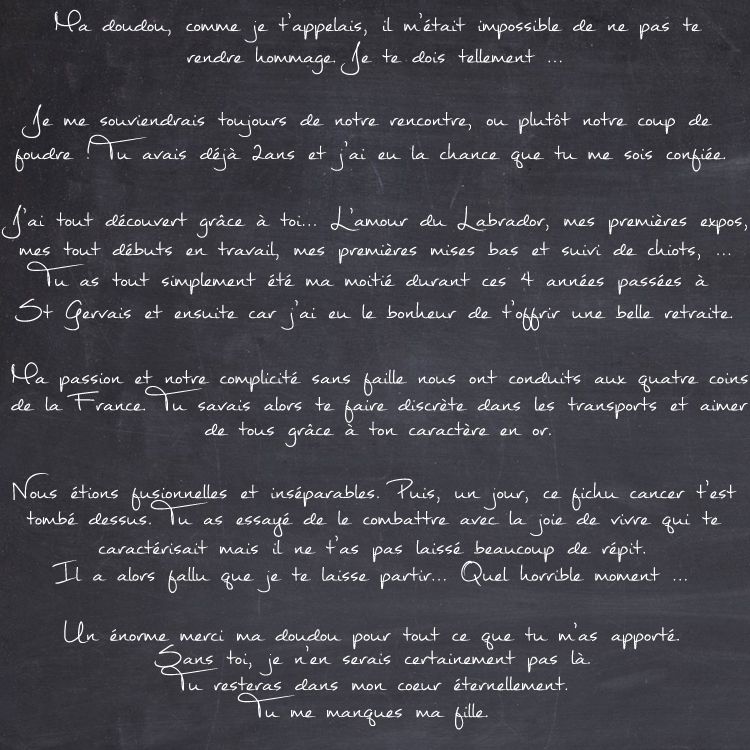 Ma doudou, comme je t'appelais, il m'était impossible de ne pas te
rendre hommage. Je te dois tellement ...
Je me souviendrais toujours de notre rencontre, ou plutôt notre coup de
foudre ! Tu avais déjà 2ans et j'ai eu la chance que tu me sois confiée.
J'ai tout découvert grâce à toi... L'amour du Labrador, mes premières expos,
mes tout débuts en travail, mes premières mises bas et suivi de chiots, ...
Tu as tout simplement été ma moitié durant ces 4 années passées à
St Gervais et ensuite car j'ai eu le bonheur de t'offrir une belle retraite.
Ma passion et notre complicité sans faille nous ont conduits aux quatre coins
de la France. Tu savais alors te faire discrète dans les transports et aimer
de tous grâce à ton caractère en or.
Nous étions fusionnelles et inséparables. Puis, un jour, ce fichu cancer t'est
tombé dessus. Tu as essayé de le combattre avec la joie de vivre qui te
caractérisait mais il ne t'as pas laissé beaucoup de répit.
Il a alors fallu que je te laisse partir... Quel horrible moment ...
Un énorme merci ma doudou pour tout ce que tu m'as apporté.
Sans toi, je n'en serais certainement pas là.
Tu resteras dans mon coeur éternellement.
Tu me manques ma fille.